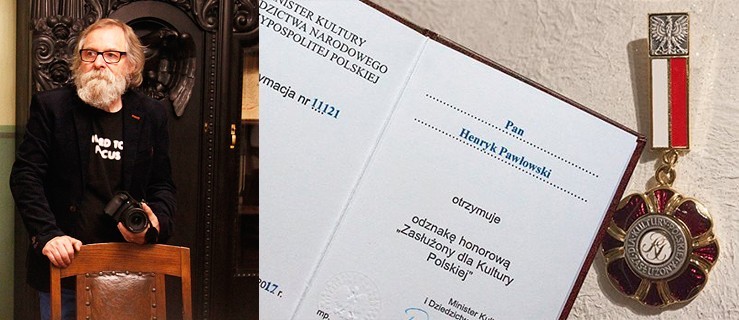 HARD TO
FOCUS
MINISTER KULTURY
DZIEDZICTWA NARODOWEGO
RZYPOSPOLITEJ POLSKIEJ
ymacja nr 11121
2017 r.
Pan
Henryk Pawłowski
otrzymuje
odznakę honorową
„Zasłużony dla Kultury
Polskiej”
Minister Kul
i Dziedzictw
mp.
ZASŁUŻONY DLA KULTURY POLSKIEJ